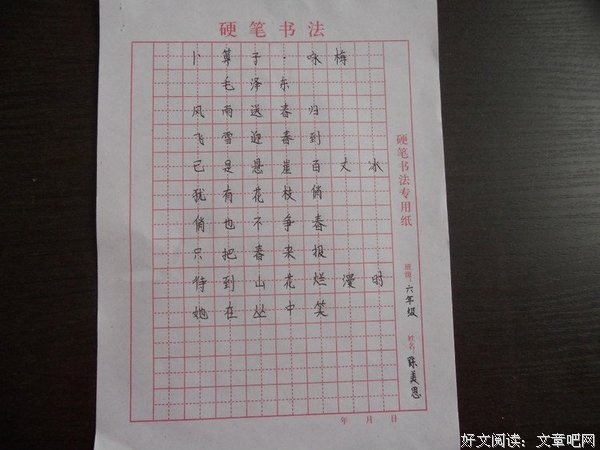 硬笔书法
卜算子·咏梅
毛泽东
风雨送春归
飞雪迎春到
已是悬崖百丈冰
犹有花枝俏
俏也不争春
只把春来报
待到山花烂漫时
她在丛中笑
硬笔书法专用纸
班级:六年级
姓名:陈美恩
年 月 日
好文阅读:文章吧网